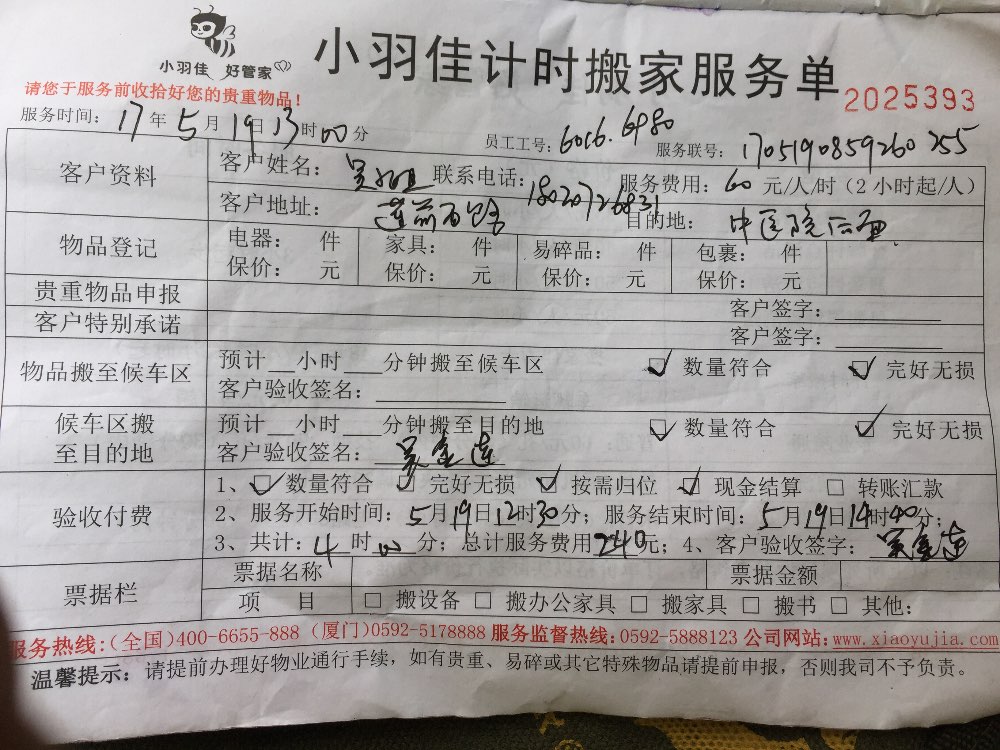 小羽佳 好管家
小羽佳计时搬家服务单
2025393
请您于服务前收拾好您的贵重物品！
服务时间：17年5月19日13时00分 员工工号：6016.6980 服务联号：1705190859260255
客户资料 客户姓名：吴小姐 联系电话：18020726831 服务费用：60元/人/时（2小时起/人）
客户地址：莲前西路 目的地：中医院后面
物品登记 电器： 件 家具： 件 易碎品： 件 包裹： 件
保价： 元 保价： 元 保价： 元 保价： 元
贵重物品申报 客户签字：
客户特别承诺 客户签字：
物品搬至候车区 预计__小时___分钟搬至候车区 数量符合 完好无损
客户验收签名：
候车区搬至目的地 预计__小时___分钟搬至目的地 数量符合 完好无损
客户验收签名：吴金莲
验收付费 1、数量符合 完好无损 按需归位 现金结算 □ 转账汇款
2、服务开始时间：5月19日12时30分；服务结束时间：5月19日14时40分；
3、共计：4时00分；总计服务费用240元；4、客户验收签字：吴金莲
票据栏 票据名称 票据金额
项 目 □ 搬设备 □ 搬办公家具 □ 搬家具 □ 搬书 □ 其他：
服务热线：（全国）400-6655-888（厦门）0592-5178888 服务监督热线：0592-5888123 公司网站：www.xiaoyujia.com
温馨提示：请提前办理好物业通行手续，如有贵重、易碎或其它特殊物品请提前申报，否则我司不予负责。